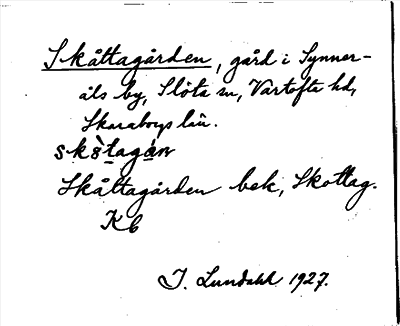 Skåttagården, gård i Synner-
åls by, Slöta sn, Vartofta hd,
Skaraborgs län.
skåtagán
Skåttagården bek, Skottag.
Kb
I. Lundahl 1927.